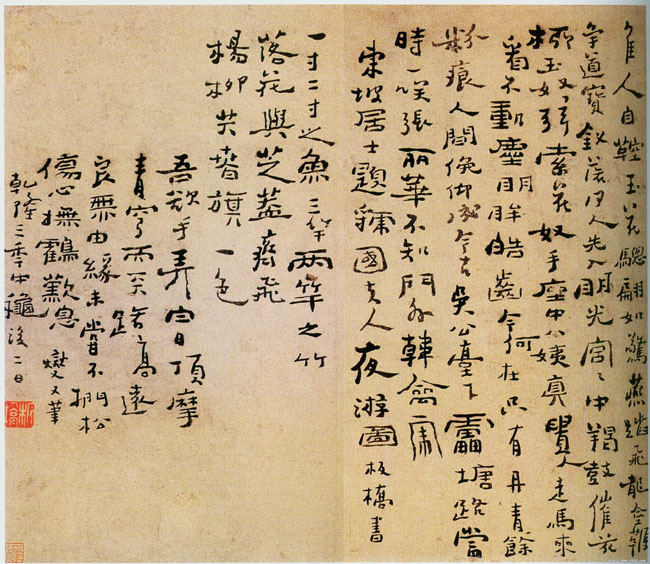 佳人自鞚玉花驄翩如驚燕蹋飛龍金鞭
爭道寶釵落何人先入明光宮〻中羯鼓催花
柳玉奴弦索花奴手座中八姨真貴人走馬來
看不動塵明眸皓齒今何在只有丹青餘
粉痕人間俛仰成今古吳公臺下靁塘路當
時一笑張麗華不知門外韓禽虎
東坡居士題虢國夫人夜游圖 板橋書
一寸二寸之魚三竿兩竿之竹
落花與芝蓋齊飛
楊柳共春旗一色
吾欲手弄白日頂摩
青穹而天路高遠
良無由緣未嘗不捫松
傷心撫鶴歎息 燮又筆
乾隆三年中龝後二日